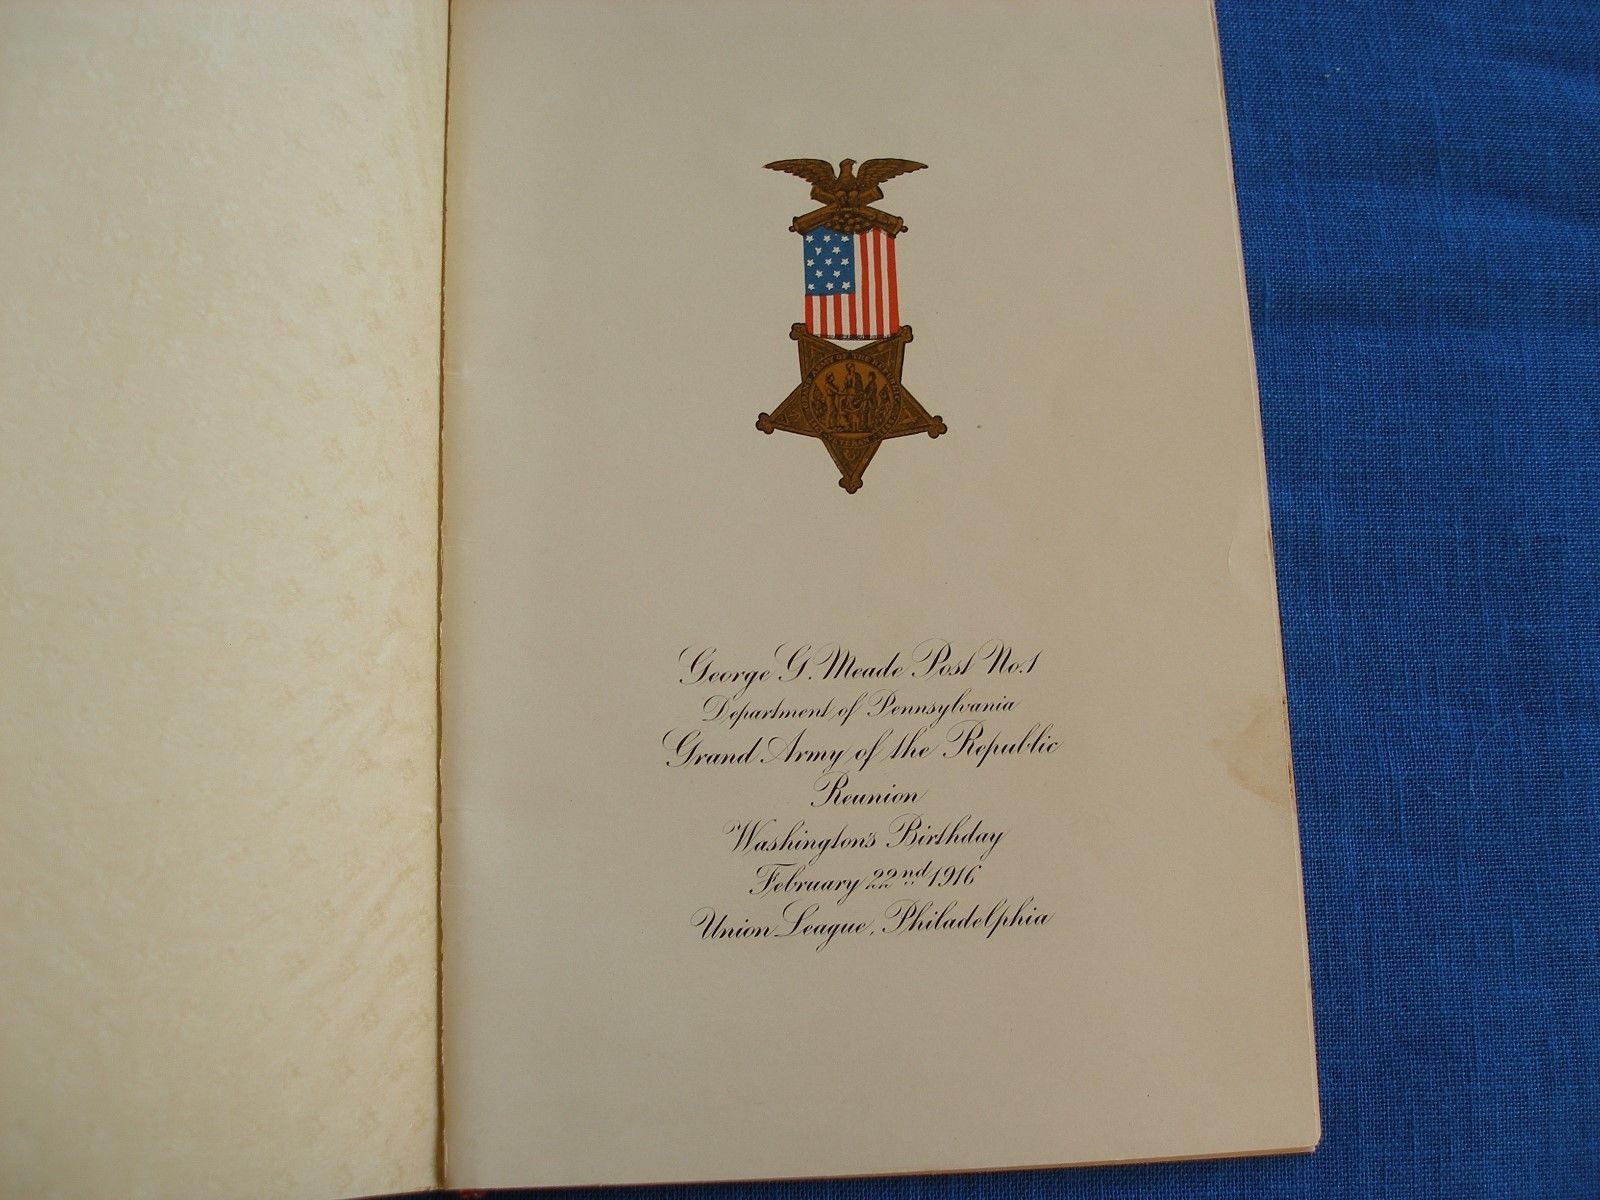 GRAND ARMY OF THE REPUBLIC
VETERAN
George G. Meade Post No. 1
Department of Pennsylvania
Grand Army of the Republic
Reunion
Washington's Birthday
February 22nd 1916
Union League, Philadelphia